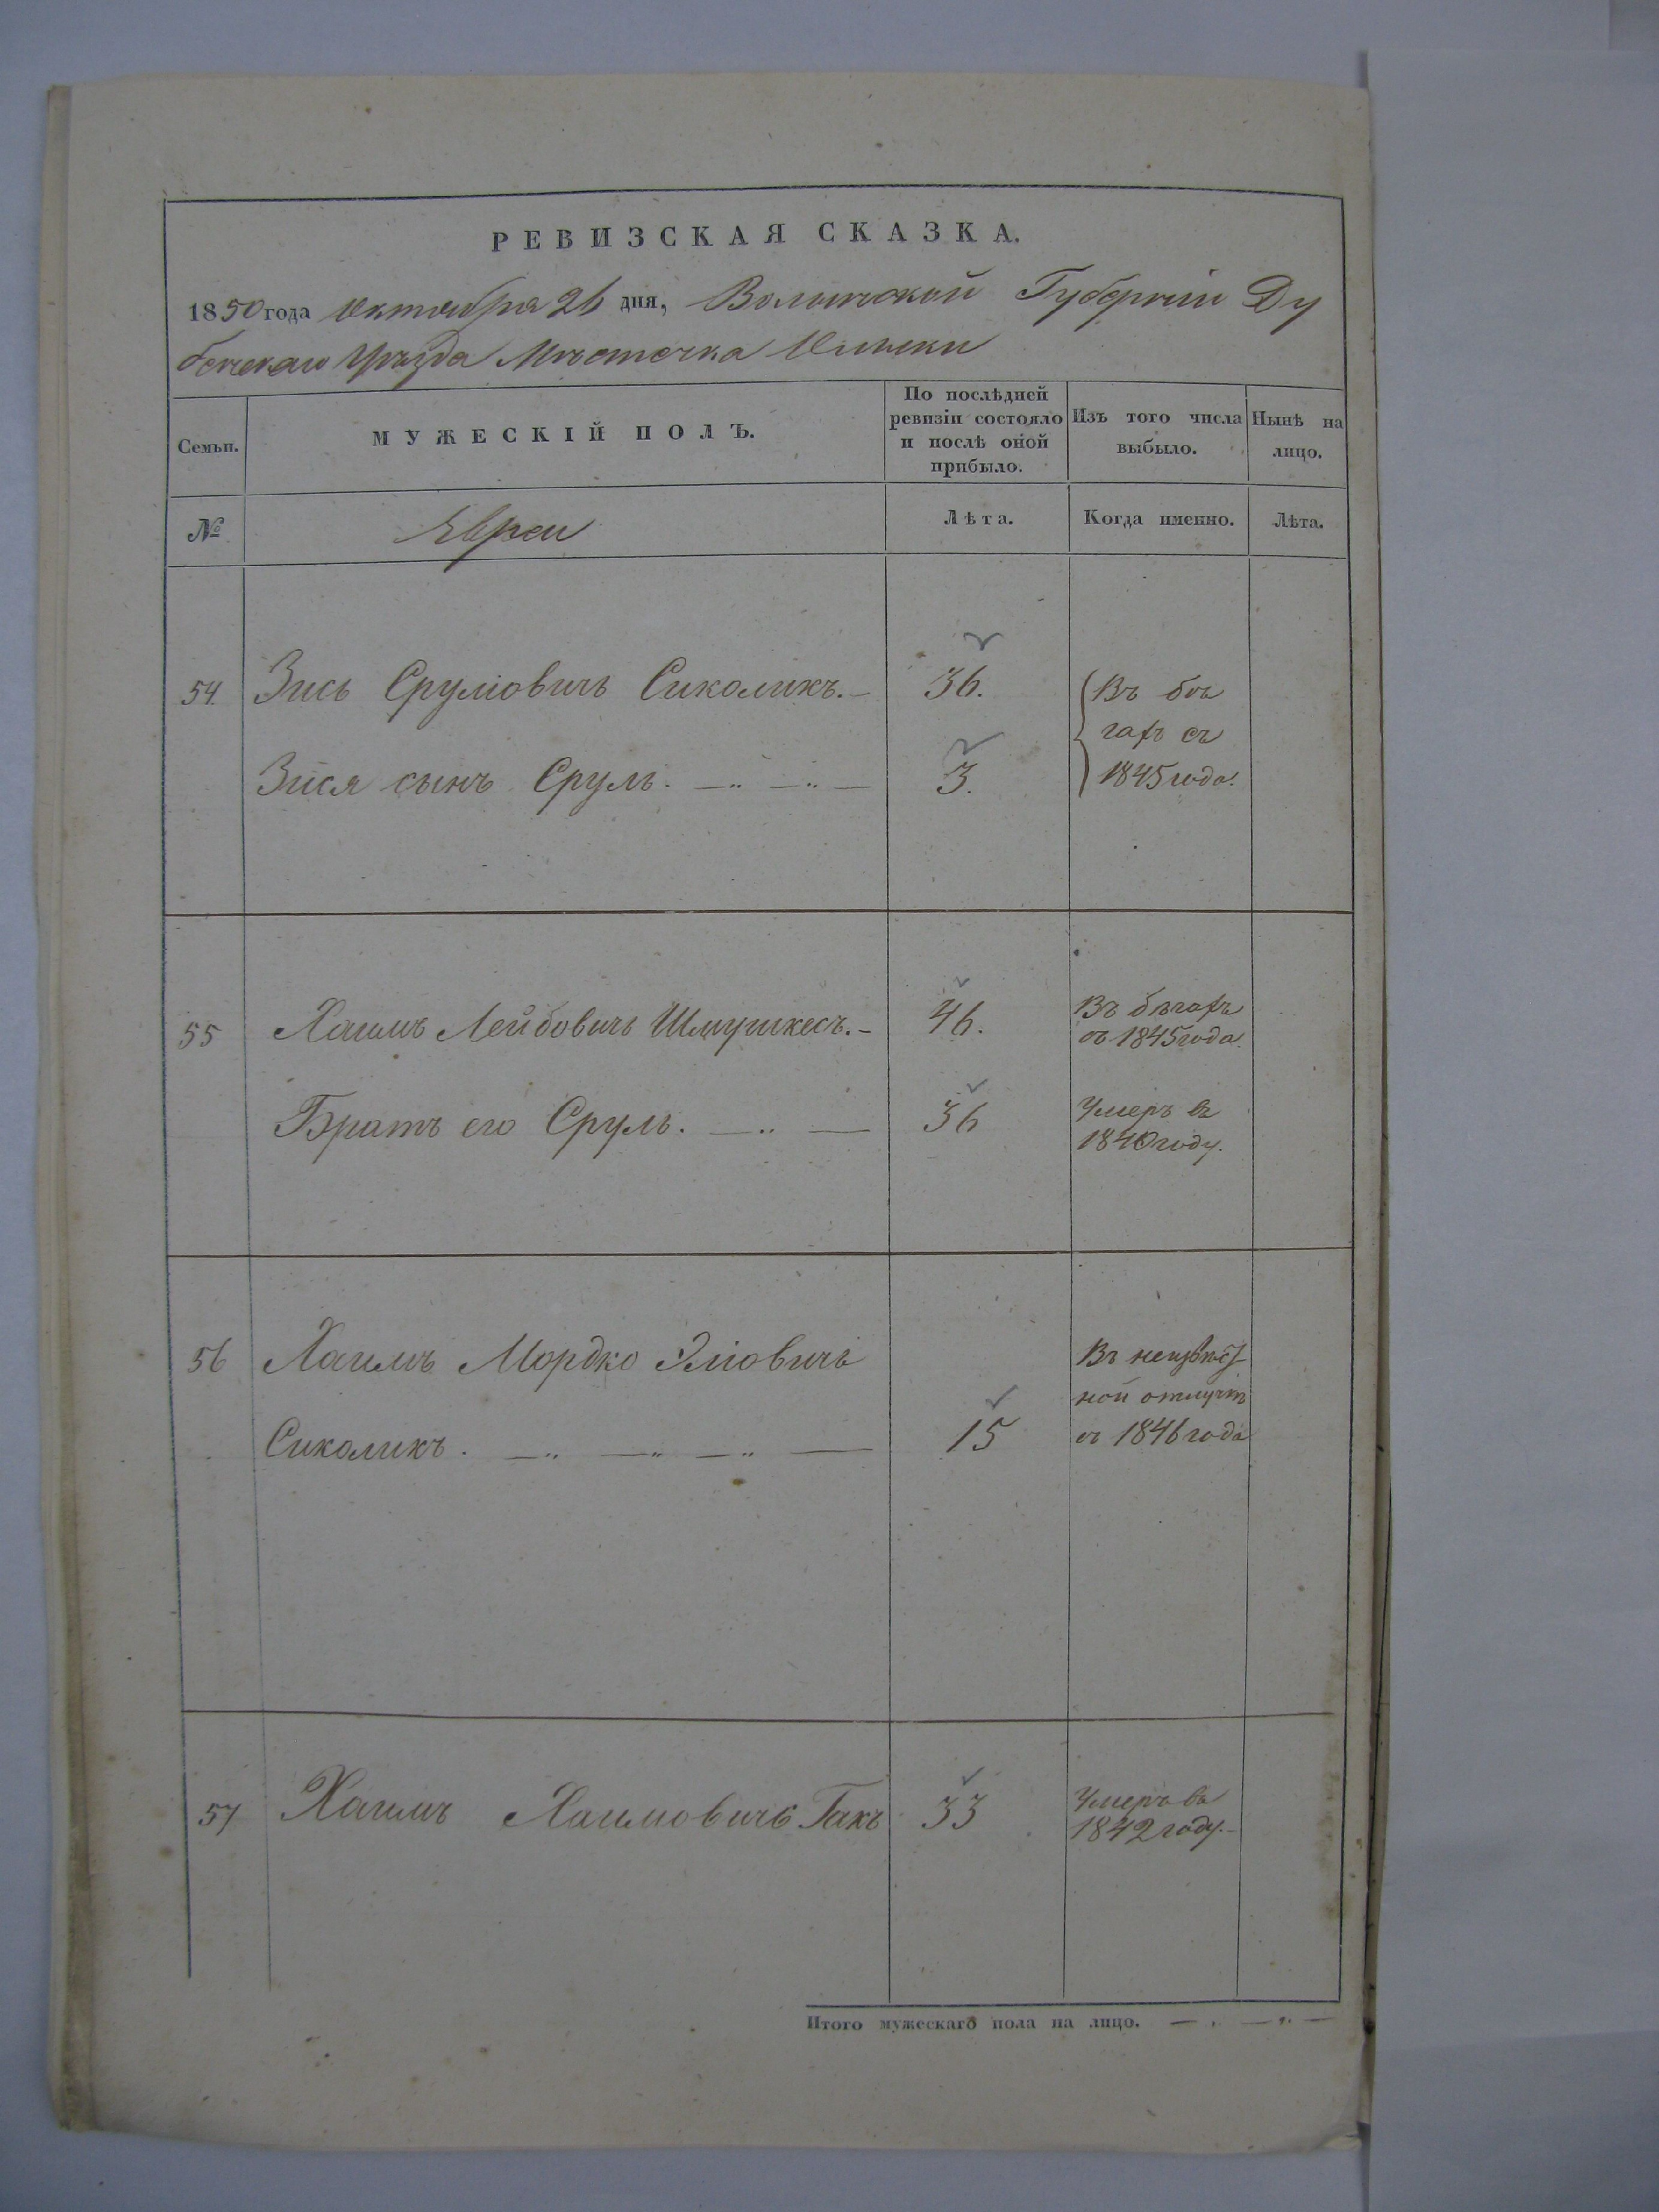 РЕВИЗСКАЯ СКАЗКА.
1850 года Октября 26 дня, Волынской Губерніи Ду
бенскаго Уѣзда Мѣстечка Олыки
Семьи.
МУЖЕСКІЙ ПОЛЪ.
По послѣдней
ревизіи состояло
и послѣ оной
прибыло.
Изъ того числа
выбыло.
Нынѣ на
лицо.
№
Евреи
Лѣта.
Когда именно.
Лѣта.
54. Зись Сруліовичъ Сиколикъ. 36. Въ бѣ
гахъ съ
Зися сынъ Сруль. 3. 1845 года.
55 Хаимъ Лейбовичъ Шмушкесъ. 46. Въ бѣгахъ
съ 1845 года.
Братъ его Сруль. 36 Умеръ въ
1840 году.
56 Хаимъ Мордко Эліовичъ Въ неизвѣст
ной отлучкѣ
Сиколикъ. 15 съ 1846 года
57 Хаимъ Хаимовичъ Гакъ 33 Умеръ въ
1842 году.
Итого мужескаго пола на лицо.